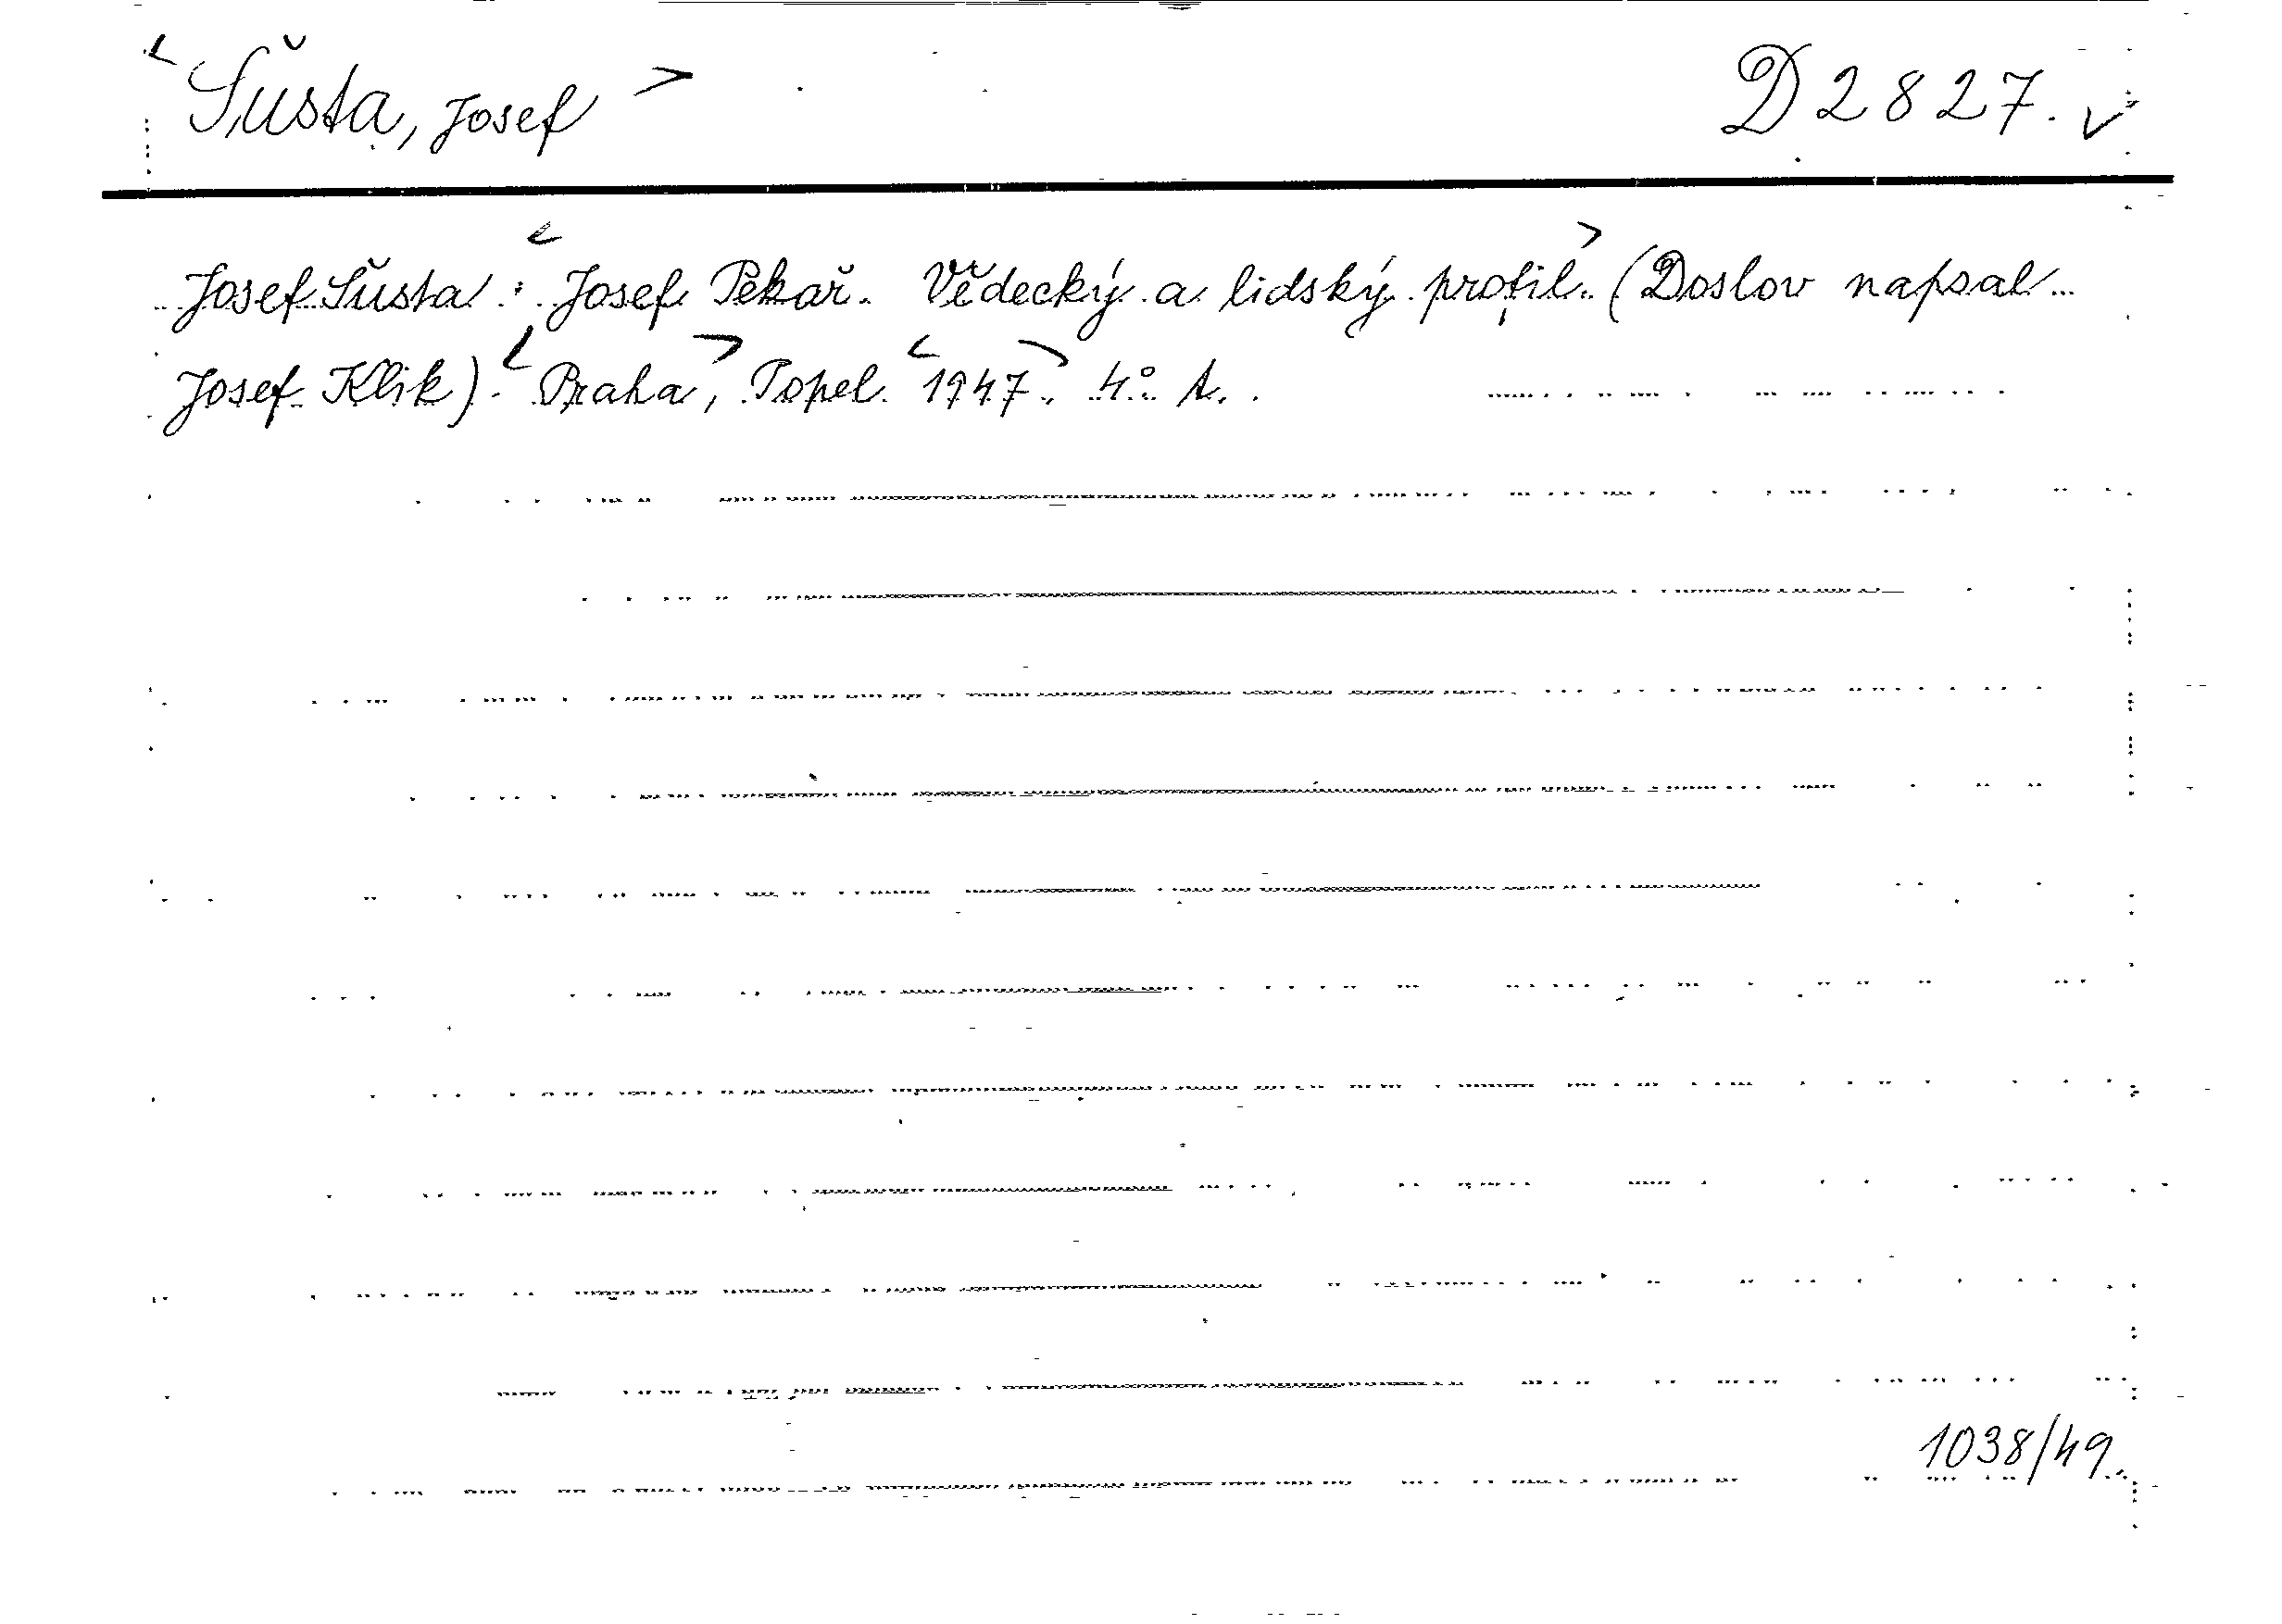 <Šusta, Josef> D 2827. v
Josef Šusta: <Josef Pekař. Vědecký a lidský profil.> (Doslov napsal
Josef Klik). <Praha>, Popel <1947>. 4°.
1038/49.